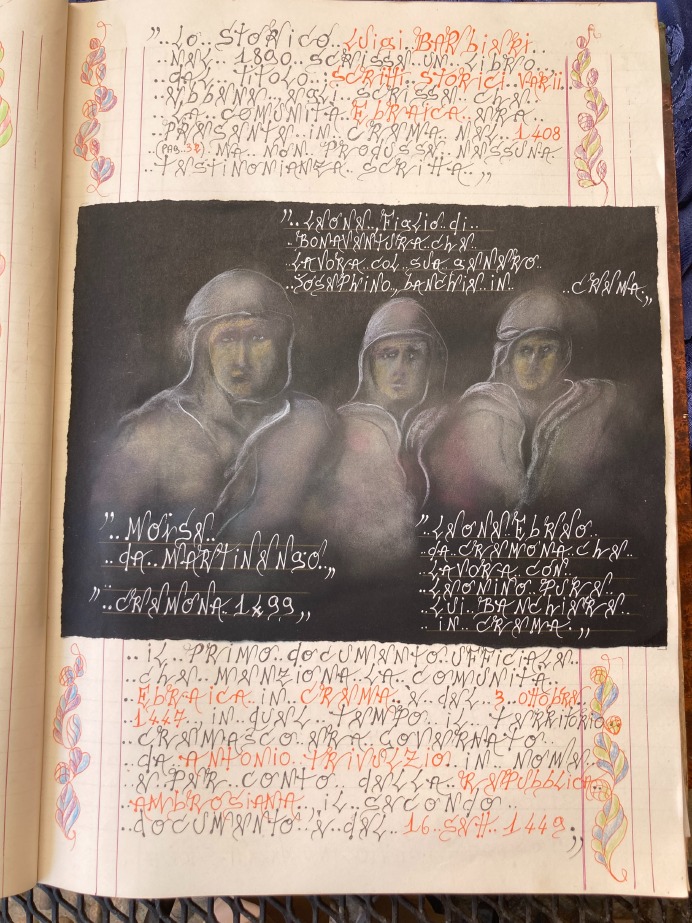 "..LO.. STORICO.. LUIGI.. BARBIERI..
..NEL.. 1890.. SCRISSE.. UN.. LIBRO..
..DAL.. TITOLO.. SCRITTI.. STORICI.. VARII..
..EBBENE.. EGLI.. SCRISSE.. CHE..
..LA.. COMUNITÀ.. EBRAICA.. ERA..
..PRESENTE.. IN.. CREMA.. NEL.. 1408
..(PAG..32) MA.. NON.. PRODUSSE.. NESSUNA..
..TESTIMONIANZA.. SCRITTA..,,
"..LEONE.. FIGLIO.. di..
..BONAVENTURA.. CHE..
..LAVORA.. COL.. SUO.. GENERO..
..IOSEPHINO.. BANCHIERE.. IN..
..CREMA..,,
"..MOISE..
..dA.. MARTINENGO..,,
"..CREMONA.. 1499,,
"..LEONE.. EBREO..
..dA.. CREMONA.. CHE..
..LAVORA.. CON..
..LEONINO.. PURE..
..LUI.. BANCHIERE..
..IN.. CREMA..,,
..IL.. PRIMO.. dOCUMENTO.. UFFICIALE..
..CHE.. MENZIONA.. LA.. COMUNITÀ..
..EBRAICA.. IN.. CREMA.. È.. dEL.. 3.. OTTOBRE..
..1447.. IN.. QUEL.. TEMPO.. IL.. TERRITORIO..
..CREMASCO.. ERA.. GOVERNATO..
..dA.. ANTONIO.. TRIVULZIO.. IN.. NOME..
..E.. PER.. CONTO.. dELLA.. REPUBBLICA..
..AMBROSIANA.., IL.. SECONDO..
..dOCUMENTO.. È.. dEL.. 16.. SETT.. 1449..,,